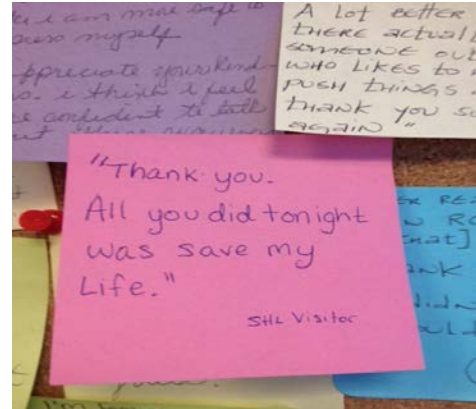 i am more safe to
myself
appreciate your kind-
i think i feel
confident to talk
A lot better
there actuall
someone ou
who likes to
push things
thank you so
again"
"Thank you.
All you did tonight
was save my
Life."
SHL Visitor